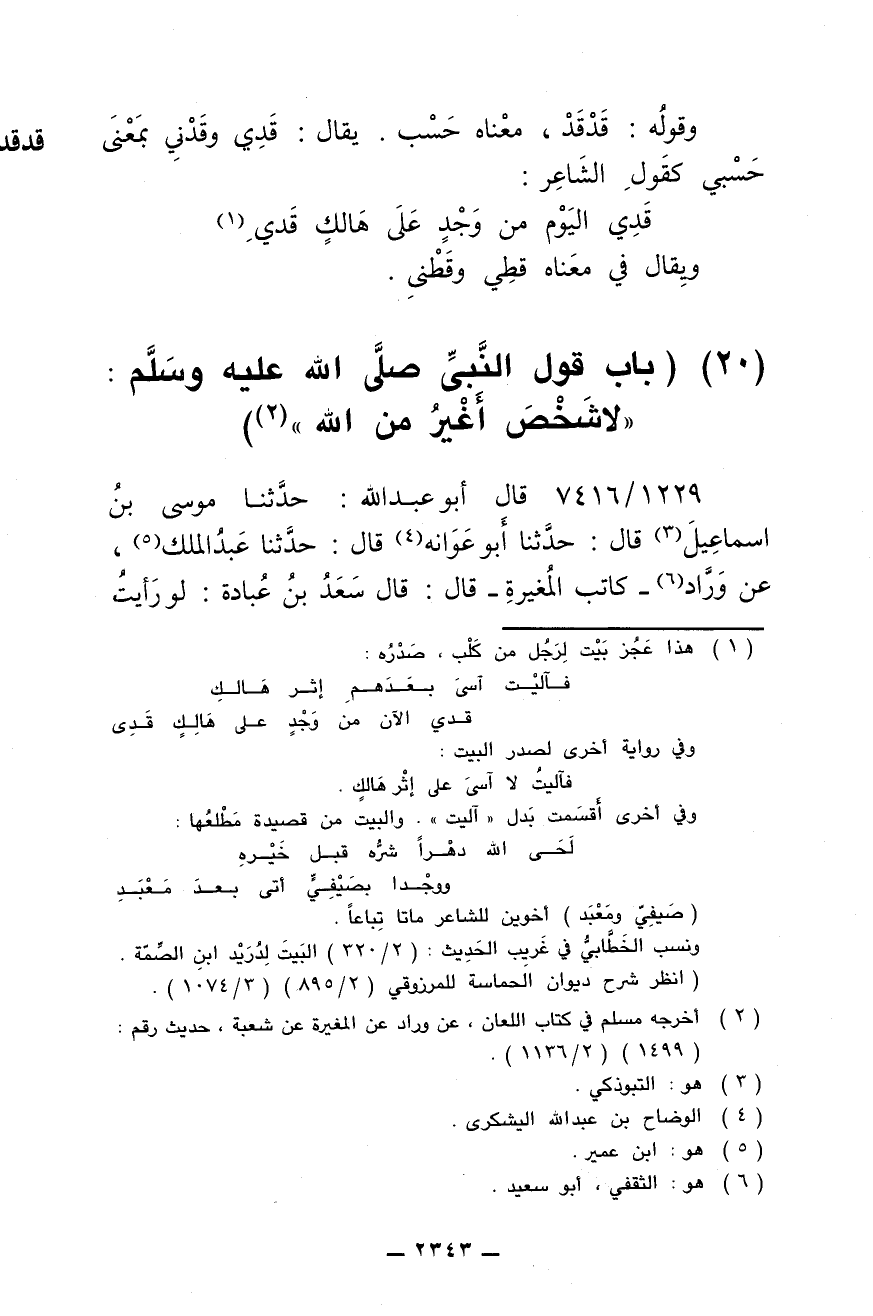 وقولُه : قَدْقَدْ ، معْناه حَسْب . يقال : قَدِي وقَدْنِي بمَعْنَى
قدقد
حَسْبي كقَولِ الشَاعِر :
قَدِي اليَوْم من وَجْدٍ عَلَى هَالكٍ قَدي (١)
ويقال في معَناه قطِي وقَطْني .
(٢٠) ( باب قول النَّبيِّ صلَّى الله عليه وسَلَّم :
«لاشَخْصَ أَغْيرُ من الله »(٢))
٧٤١٦/١٢٢٩ قال أبو عبدالله : حدَّثنا موسى بنُ
اسماعِيلَ(٣) قال : حدَّثنا أَبو عَوَانه(٤) قال : حدَّثنا عَبدُالملك(٥) ،
عن وَرَّاد(٦) ـ كاتب المُغيرةِ ـ قال : قال سَعَدُ بنُ عُبادة : لو رَأيتُ
( ١ ) هذا عَجُز بَيْت لِرَجُل من كَلْب ، صَدْرُه :
فـآليْـت آسىَ بـعَـدَهـمِ إثـر هَـالـكِ
قـدي الآن من وَجْدٍ علـى هَالِـكٍ قَـدِى
وفي رواية أخرى لصدر البيت :
فآليتُ لا آسىَ على إثْر هَالكٍ .
وفي أخرى أَقسَمت بَدل « آليت » . والبيت من قصيدة مَطْلعُها :
لَحَـى الله دهْـراً شرُّه قبـل خَيْـرهِ
ووجْـدا بصَيْفِـيٍّ أتى بـعـدَ مَـعْبَـدِ
( صَيفِيّ ومَعْبَد ) أخوين للشاعر ماتا تِباعاً .
ونسب الخَطَّابيُّ في غَريب الحَديث : ( ٣٢٠/٢ ) البَيتَ لِدُرَيْد ابنِ الصِّمّة .
( انظر شرح ديوان الحماسة للمرزوقي ( ٨٩٥/٢ ) ( ١٠٧٤/٣ ) .
( ٢ ) أخرجه مسلم في كتاب اللعان ، عن وراد عن المغيرة عن شعبة ، حديث رقم :
( ١٤٩٩ ) ( ١١٣٦/٢ ) .
( ٣ ) هو : التبوذكي .
( ٤ ) الوضاح بن عبدالله اليشكرى .
( ٥ ) هو : ابن عمير .
( ٦ ) هو : الثقفي ، أبو سعيد .
ـ ٢٣٤٣ ـ